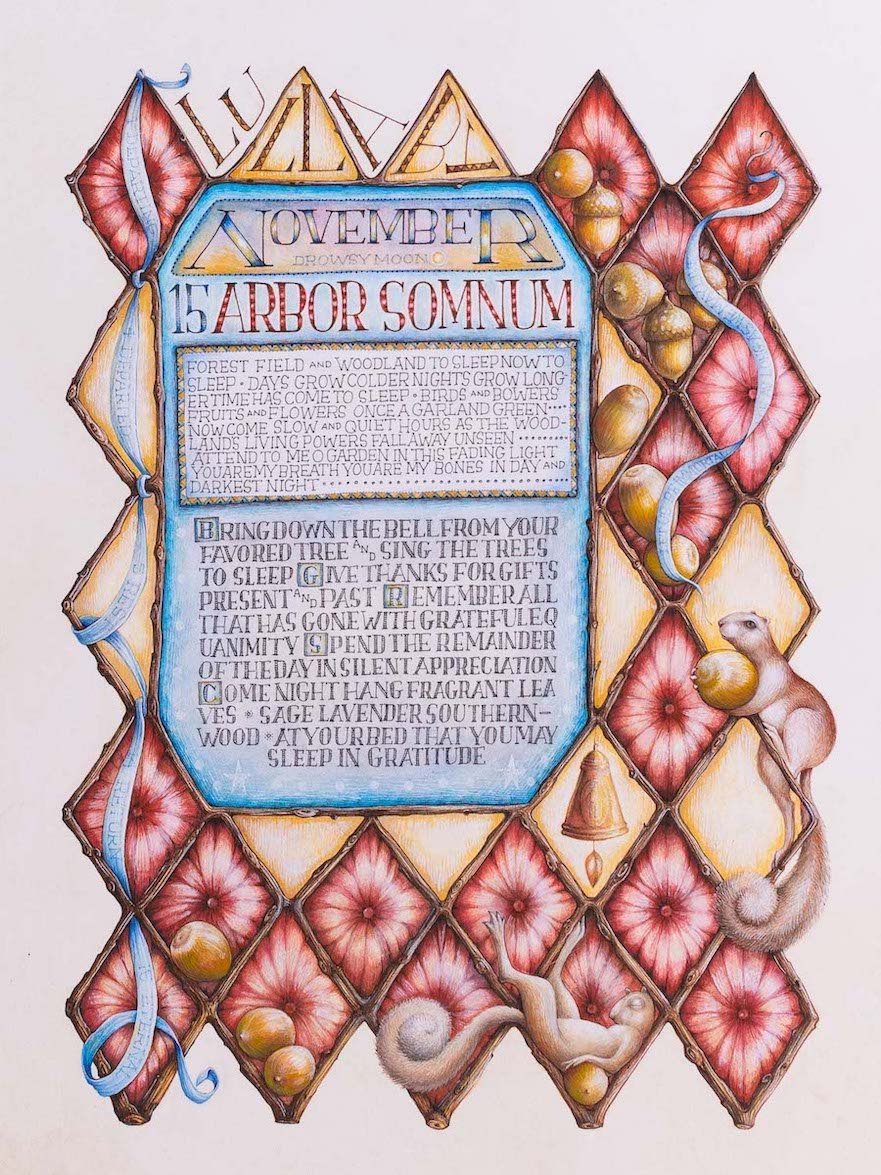 LULLABY
NOVEMBER
DROWSY MOON
15 ARBOR SOMNUM
FOREST FIELD AND WOODLAND TO SLEEP NOW TO
SLEEP • DAYS GROW COLDER NIGHTS GROW LONG
ER TIME HAS COME TO SLEEP • BIRDS AND BOWERS
FRUITS AND FLOWERS ONCE A GARLAND GREEN
NOW COME SLOW AND QUIET HOURS AS THE WOOD-
LANDS LIVING POWERS FALL AWAY UNSEEN
ATTEND TO ME O GARDEN IN THIS FADING LIGHT
YOU ARE MY BREATH YOU ARE MY BONES IN DAY AND
DARKEST NIGHT
BRING DOWN THE BELL FROM YOUR
FAVORED TREE AND SING THE TREES
TO SLEEP GIVE THANKS FOR GIFTS
PRESENT AND PAST REMEMBER ALL
THAT HAS GONE WITH GRATEFUL EQ
UANIMITY SPEND THE REMAINDER
OF THE DAY IN SILENT APPRECIATION
COME NIGHT HANG FRAGRANT LEA
VES • SAGE LAVENDER SOUTHERN-
WOOD • AT YOUR BED THAT YOU MAY
SLEEP IN GRATITUDE
RETURN